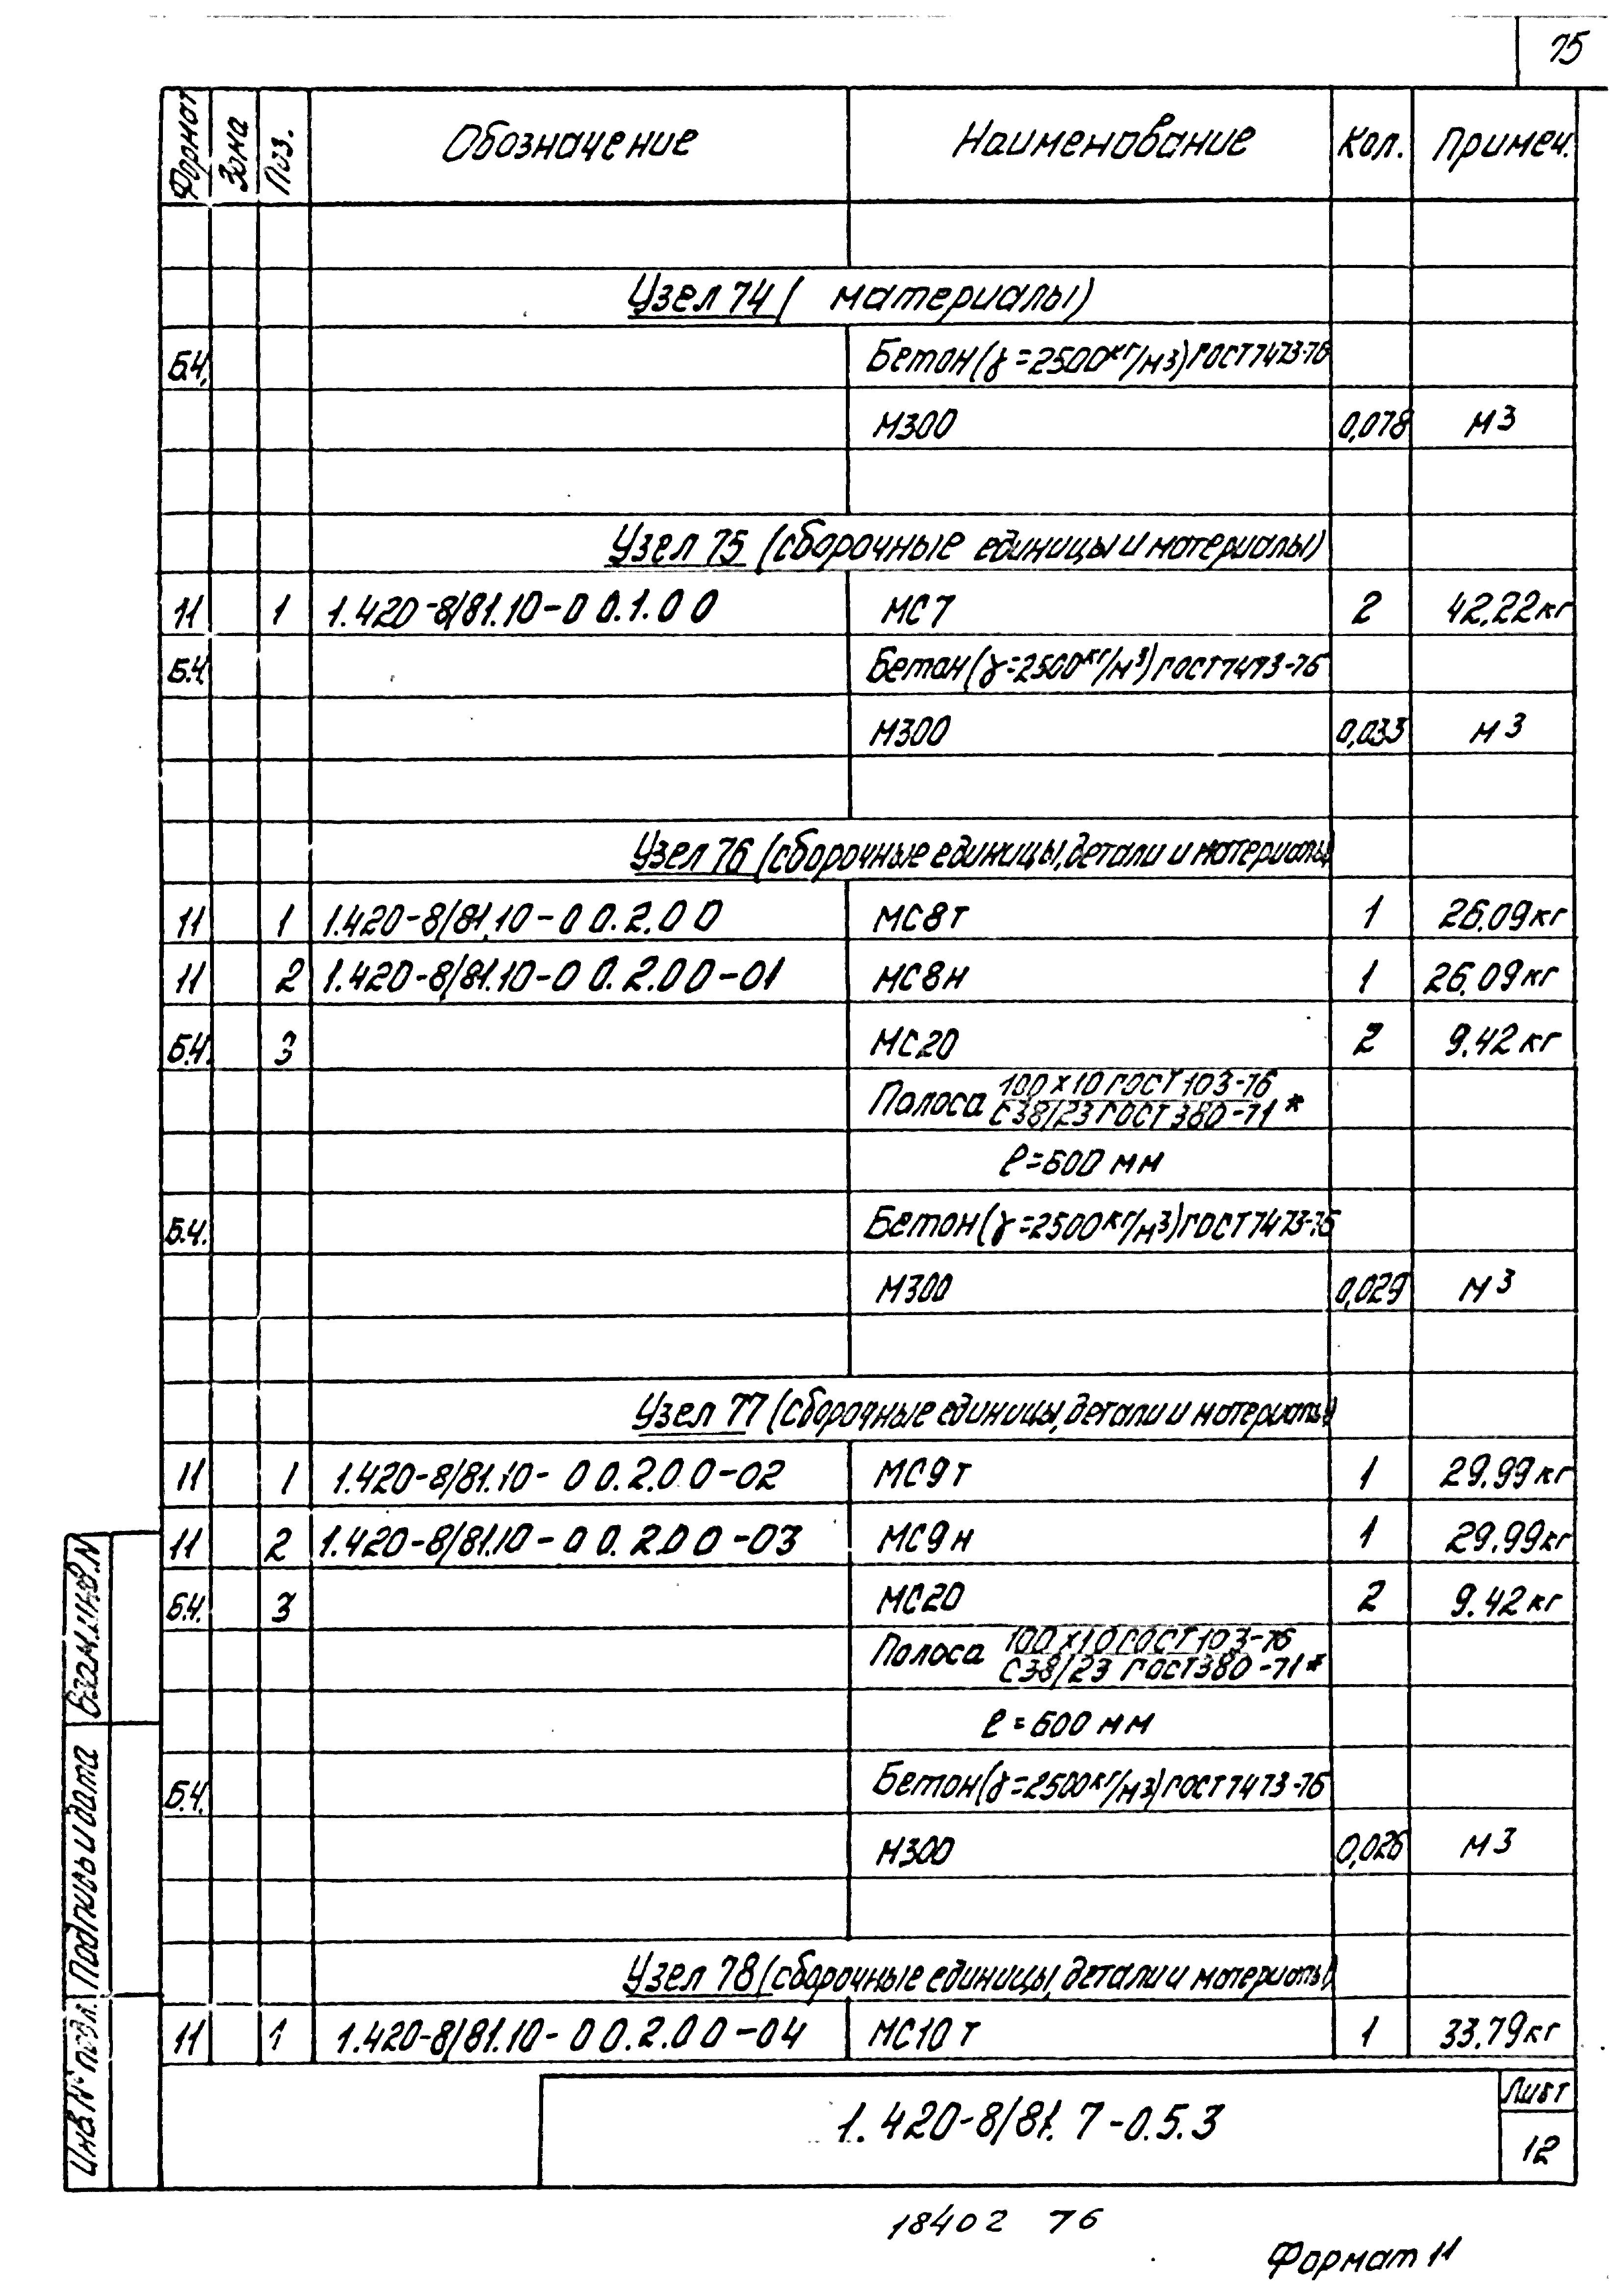 75
Формат Зона Поз. Обозначение Наименование Кол. Примеч.
Узел 74 ( материалы)
Б.Ч. Бетон (γ=2500кг/м3) ГОСТ 7473-76
М300 0,078 м3
Узел 75 (сборочные единицы и материалы)
11 1 1.420-8/81.10-00.1.00 МС7 2 42.22кг
Б.Ч. Бетон (γ=2500кг/м3) ГОСТ 7473-76
М300 0,033 м3
Узел 76 (сборочные единицы, детали и материалы)
11 1 1.420-8/81.10-00.2.00 МС8т 1 26.09кг
11 2 1.420-8/81.10-00.2.00-01 МС8н 1 26.09кг
Б.Ч. 3 МС20 2 9.42кг
Полоса 100×10 ГОСТ 103-76
С38/23 ГОСТ 380-71*
ℓ=600 мм
Б.Ч. Бетон (γ=2500кг/м3) ГОСТ 7473-76
М300 0,029 м3
Узел 77 (сборочные единицы, детали и материалы)
11 1 1.420-8/81.10-00.2.00-02 МС9т 1 29.99кг
11 2 1.420-8/81.10-00.2.00-03 МС9н 1 29.99кг
Б.Ч. 3 МС20 2 9.42кг
Полоса 100×10 ГОСТ 103-76
С38/23 ГОСТ 380-71*
ℓ=600 мм
Б.Ч. Бетон (γ=2500кг/м3) ГОСТ 7473-76
М300 0,026 м3
Узел 78 (сборочные единицы, детали и материалы)
11 1 1.420-8/81.10-00.2.00-04 МС10т 1 33.79кг
Взам.инв.N
Подпись и дата
Инв.№ подл.
1.420-8/81.7-0.5.3
Лист
12
18402 76
Формат 11